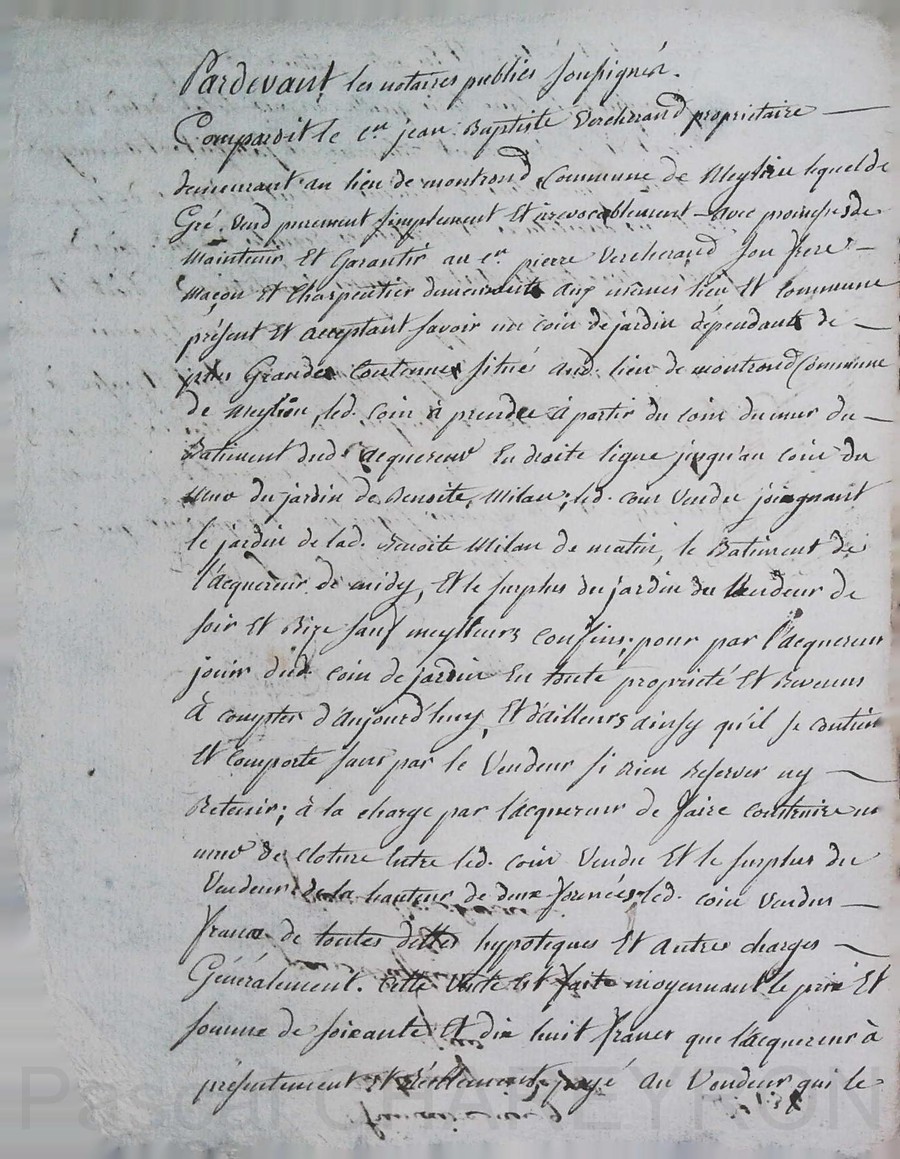 Pardevant les notaires publics soussignés.
Comparoit le cen jean Baptiste Vercherand propriétaire
demeurant au lieu de montrond Commune de Meylieu lequel de
Gré. Vend purement simplement Et irrevocablement avec promesse de
Maintenir Et Garantir au cen pierre Vercherand son frere
Maçon Et Charpentier demeurants aux mêmes lieu Et Commune
présent Et acceptant savoir un coin de jardin dépendant de
plus Grandes Contenues situé aud. lieu de montrond Commune
de Meylieu, led. coin à prendre à partir du coin du mur du
Batiment dud. acquereur En droite ligne jusqu'au coin du
mur du jardin de Benoite Milan; led. coin vendu joignant
le jardin de lad. Benoite Milan de matin, le Batiment de
l'acquereur de midy, Et le surplus du jardin du Vendeur de
soir Et Bize sauf meylleurs confins; pour par l'acquereur
jouir dud. coin de jardin En toute propriété Et Revenus
à compter d'aujourd'huy, Et d'ailleurs ainsy qu'il se contient
Et comporte sans par le Vendeur si Rien Reserver ny
Retenir; à la charge par l'acquereur de faire construire un
mur de cloture Entre led. coin Vendu Et le surplus du
Vendeur de la hauteur de deux led. coin vendu
franc de toutes dettes hypoteques Et autres charges
Généralement. Cette Vente Est faite moyennant le prix Et
somme de soixante Et dix huit francs que l'acquereur à
présentement Et Réellement payé au Vendeur qui le
Pascal CHAMEYRON